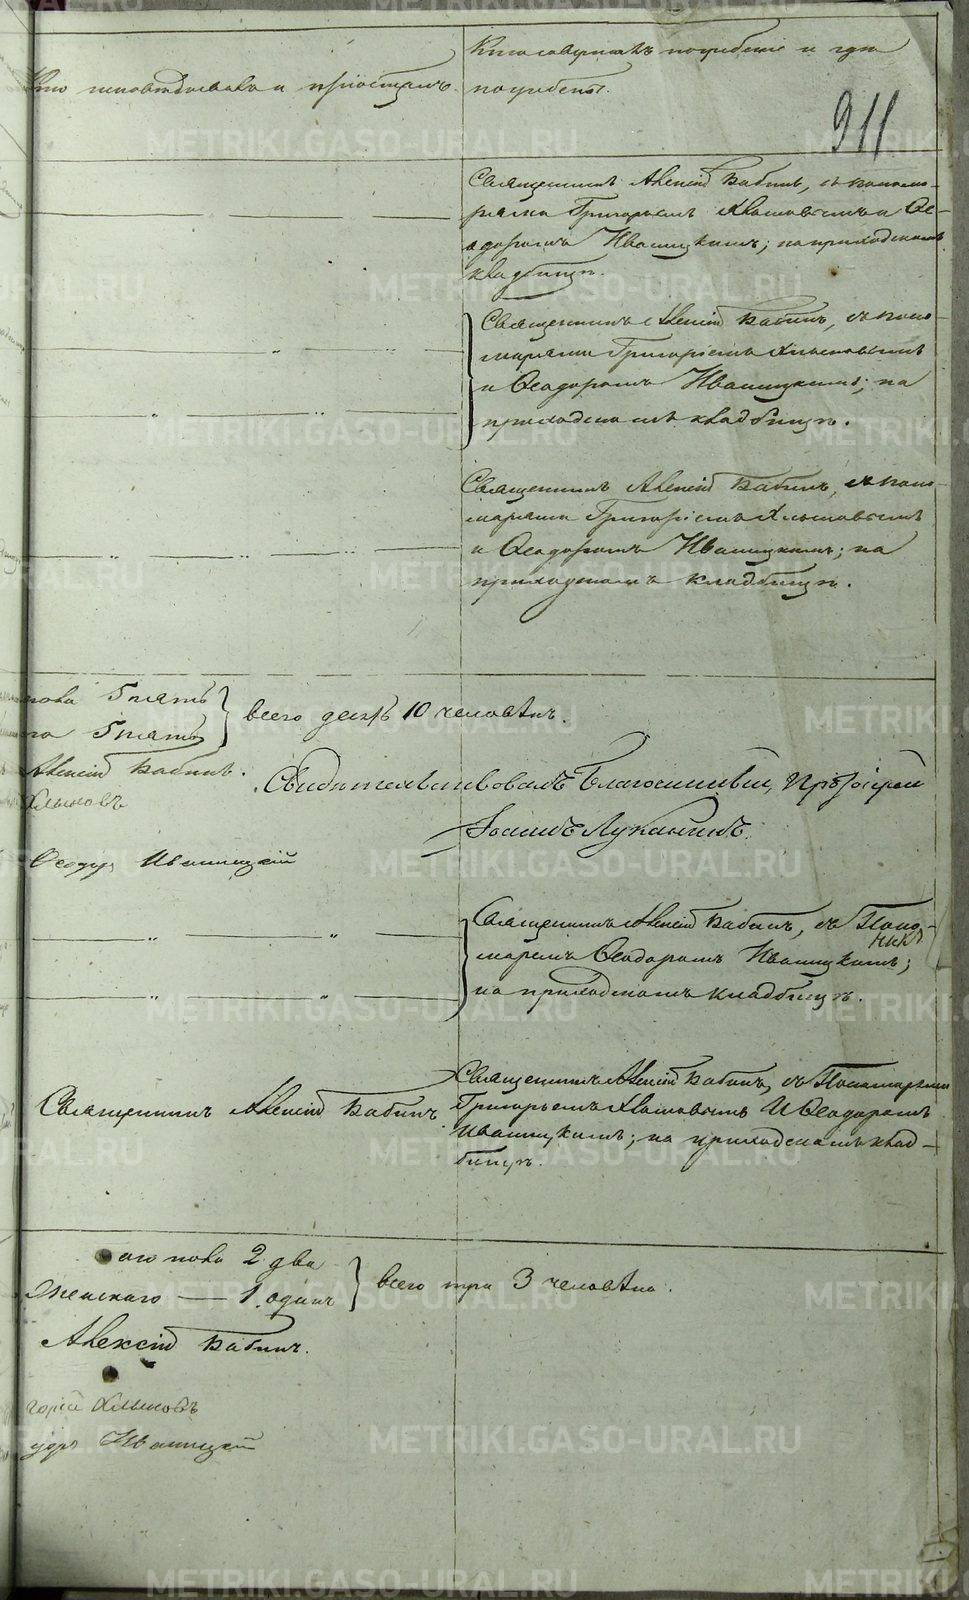 Кто исповѣдывалъ и пріобщалъ.
Кто совершалъ погребеніе и гдѣ
погребены.
911
Священникъ Алексій Бабинъ, съ понома-
рями Григорьемъ Хлыновымъ и Ѳе-
одоромъ Иваницкимъ; на приходскомъ
кладбищѣ.
Священникъ Алексій Бабинъ, съ поно-
марями Григоріемъ Хлыновымъ
и Ѳеодоромъ Иваницкимъ; на
приходскомъ кладбищѣ.
Священникъ Алексій Бабинъ, съ поно-
марями Григоріемъ Хлыновымъ
и Ѳеодоромъ Иваницкимъ; на
приходскомъ кладбищѣ.
пола 5 пять
го 5 пять
всего десять 10 человѣкъ.
Алексій Бабинъ.
Хлыновъ
Свидѣтельствовалъ Благочинный, Протоіерей
Іоаннъ Луканинъ.
Ѳеодоръ Иваницкій
Священникъ Алексій Бабинъ, съ Поно-
маремъ Ѳеодоромъ Иваницкимъ;
на приходскомъ кладбищѣ.
Священникъ Алексій Бабинъ.
Священникъ Алексій Бабинъ, съ Пономарями
Григорьемъ Хлыновымъ И Ѳеодоромъ
Иваницкимъ; на приходскомъ клад-
бищѣ.
ого пола 2 два
Женскаго — 1. одинъ
всего три 3 человѣка.
Алексій Бабинъ.
горій Хлыновъ
доръ Иваницкій
METRIKI.GASO-URAL.RU